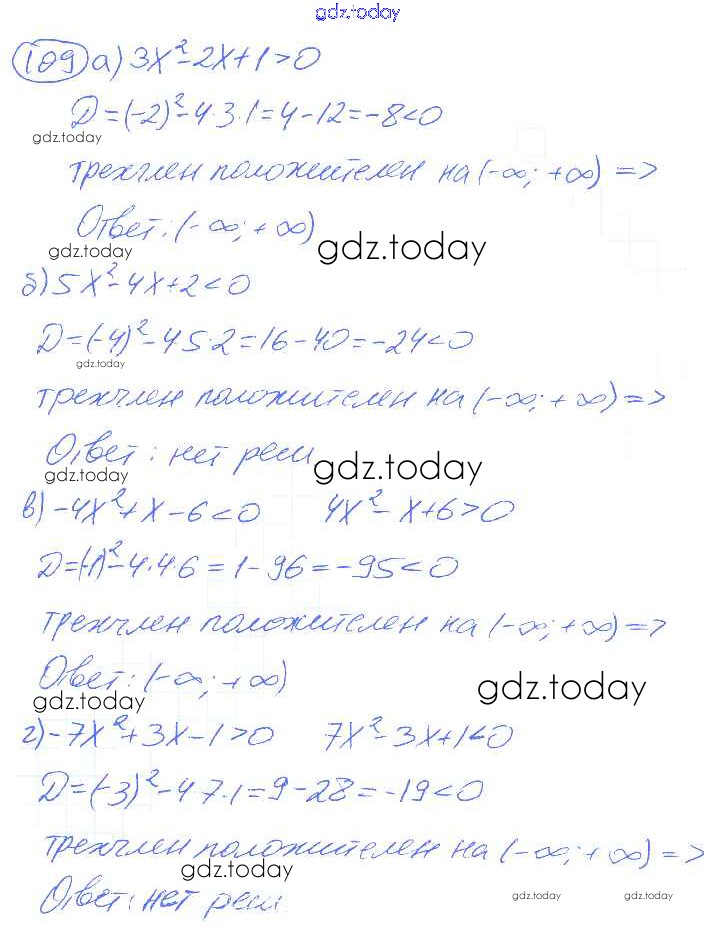 gdz.today
109 а) 3x² - 2x + 1 > 0
D = (-2)² - 4·3·1 = 4 - 12 = -8 < 0
gdz.today
трехчлен положителен на (-∞; +∞) =>
Ответ: (-∞; +∞)
gdz.today gdz.today
б) 5x² - 4x + 2 < 0
D = (-4)² - 4·5·2 = 16 - 40 = -24 < 0
gdz.today
трехчлен положителен на (-∞; +∞) =>
Ответ: нет реш.
gdz.today gdz.today
в) -4x² + x - 6 < 0 4x² - x + 6 > 0
D = (-1)² - 4·4·6 = 1 - 96 = -95 < 0
трехчлен положителен на (-∞; +∞) =>
Ответ: (-∞; +∞)
gdz.today gdz.today
г) -7x² + 3x - 1 > 0 7x² - 3x + 1 < 0
D = (-3)² - 4·7·1 = 9 - 28 = -19 < 0
трехчлен положителен на (-∞; +∞) =>
gdz.today
Ответ: нет реш.
gdz.today gdz.today